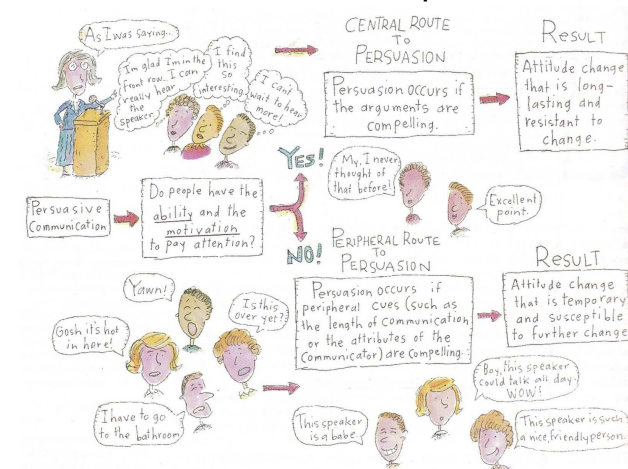 As I was saying...
I'm glad I'm in the
front row...I can
really hear
the
speaker.
I find
this
so
interesting
I can't
wait to hear
more!
CENTRAL ROUTE
TO
PERSUASION
Persuasion occurs if
the arguments are
compelling.
RESULT
Attitude change
that is long-
lasting and
resistant to
change.
YES!
My, I never
thought of
that before!
Excellent
point.
Persuasive
Communication
Do people have the
ability and the
motivation
to pay attention?
NO!
PERIPHERAL ROUTE
TO
PERSUASION
Persuasion occurs if
peripheral cues (such as
the length of communication
or the attributes of the
communicator) are compelling.
RESULT
Attitude change
that is temporary
and susceptible
to further change
Yawn!
Is this
over yet?
Gosh it's hot
in here!
I have to go
to the bathroom
This speaker
is a babe
Boy, this speaker
could talk all day.
WOW!
This speaker is such
a nice, friendly person.